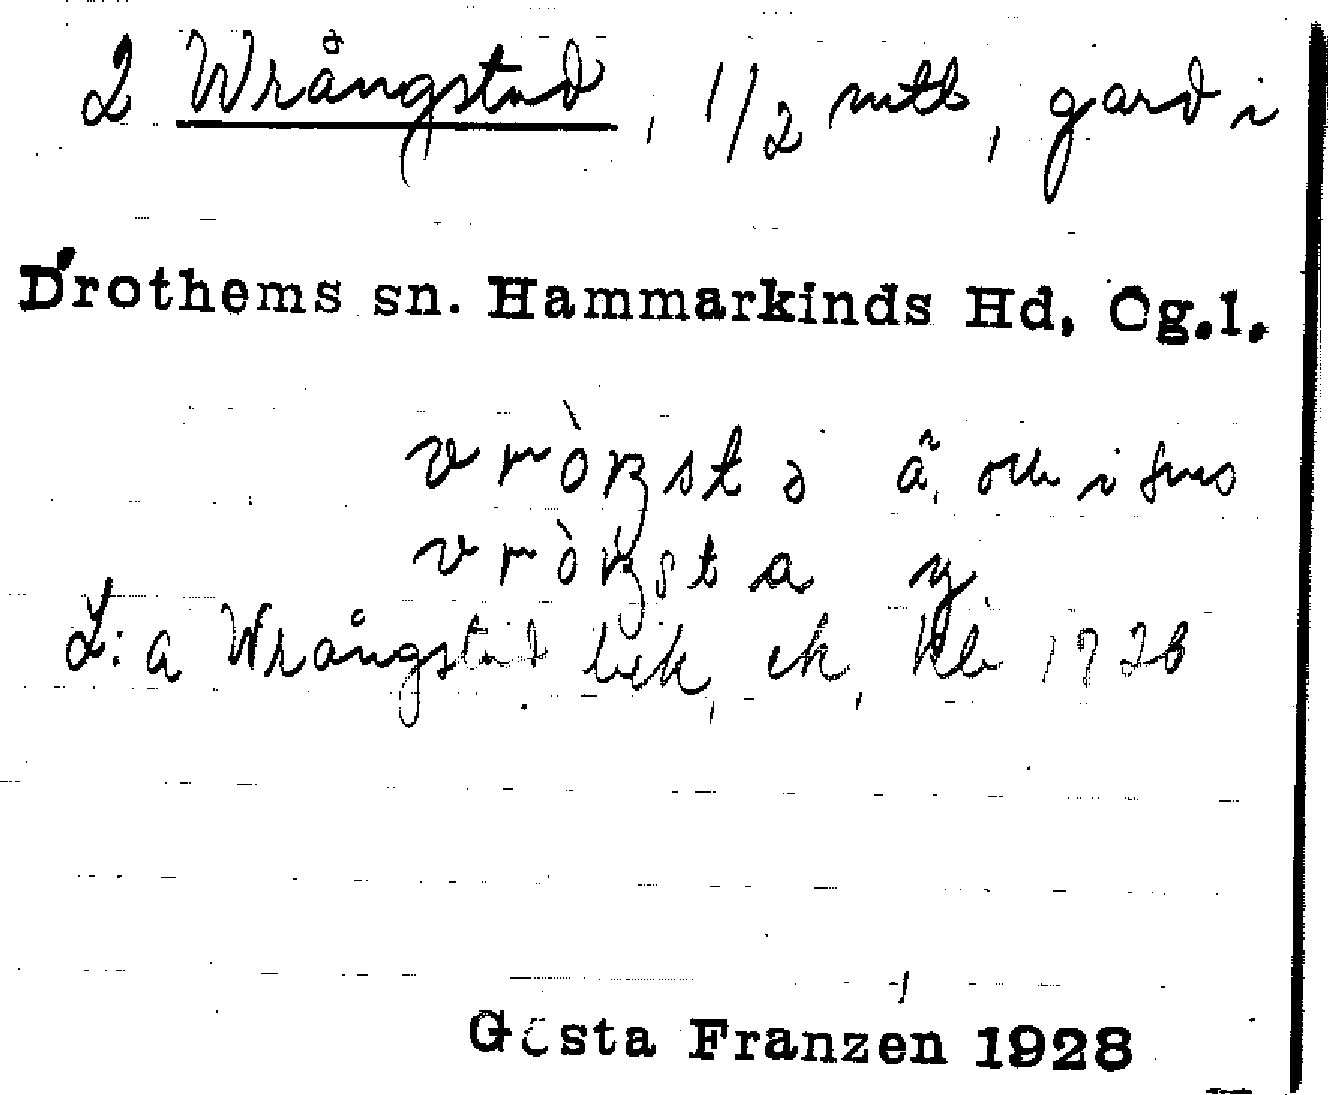 2 Wrångstad, 1/2 mtl, gård i
Drothems sn. Hammarkinds Hd, Og.l.
vròŋstə ä.
vròŋsta y
L:a Wrångstad bek, ek, 1926
Gösta Franzen 1928